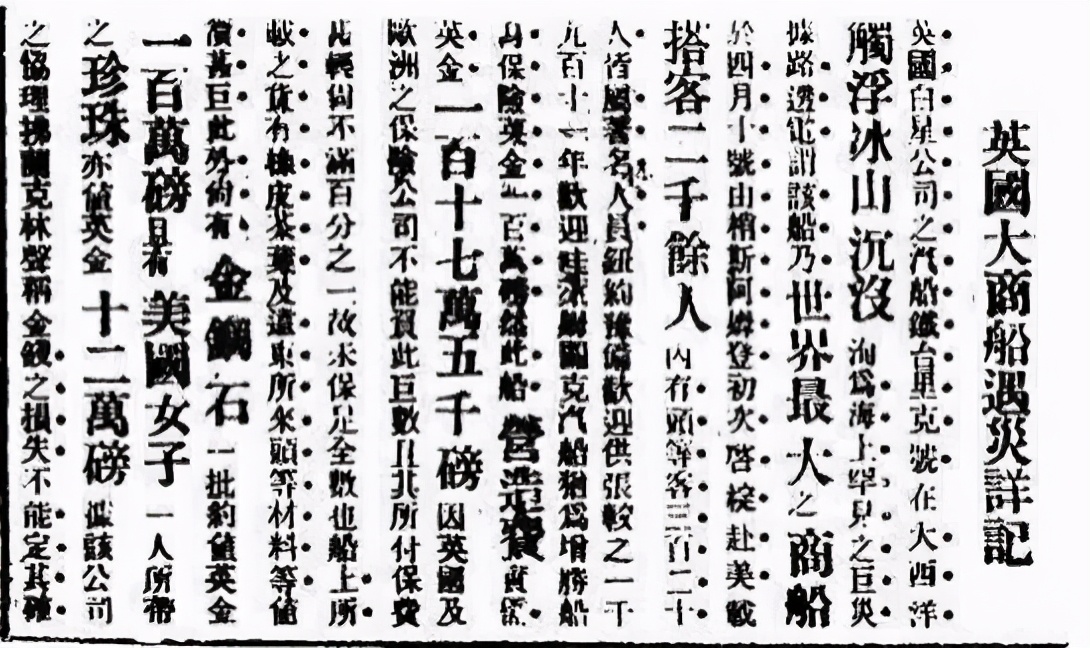 英國大商船遇災詳記
英國白星公司之汽船鐵台量克號在大西洋
觸浮冰山沉沒洵爲海上罕見之巨災
據路透電謂該船乃世界最大之商船
於四月十號由修斯阿姆登初次啓椗赴美載
搭客二千餘人內有頭等客三百二十
人皆屬著名人員紐約豫備歡迎供張較之一千
九百十一年歡迎哇林闢克汽船猶爲增勝船
身保險英金一百萬磅然此船營造費實需
英金一百十七萬五千磅因英國及
歐洲之保險公司不能負此巨數且其所付保費
尚不滿百分之一故未保足全數也船上所
載之貨有橡皮茶葉及遠東所來頭等材料等值
價甚巨此外尚有金鋼石一批約值英金
一百萬磅且有美國女子一人所帶
之珍珠亦值英金十二萬磅據該公司
之協理拂蘭克林聲稱金錢之損失不能定其確